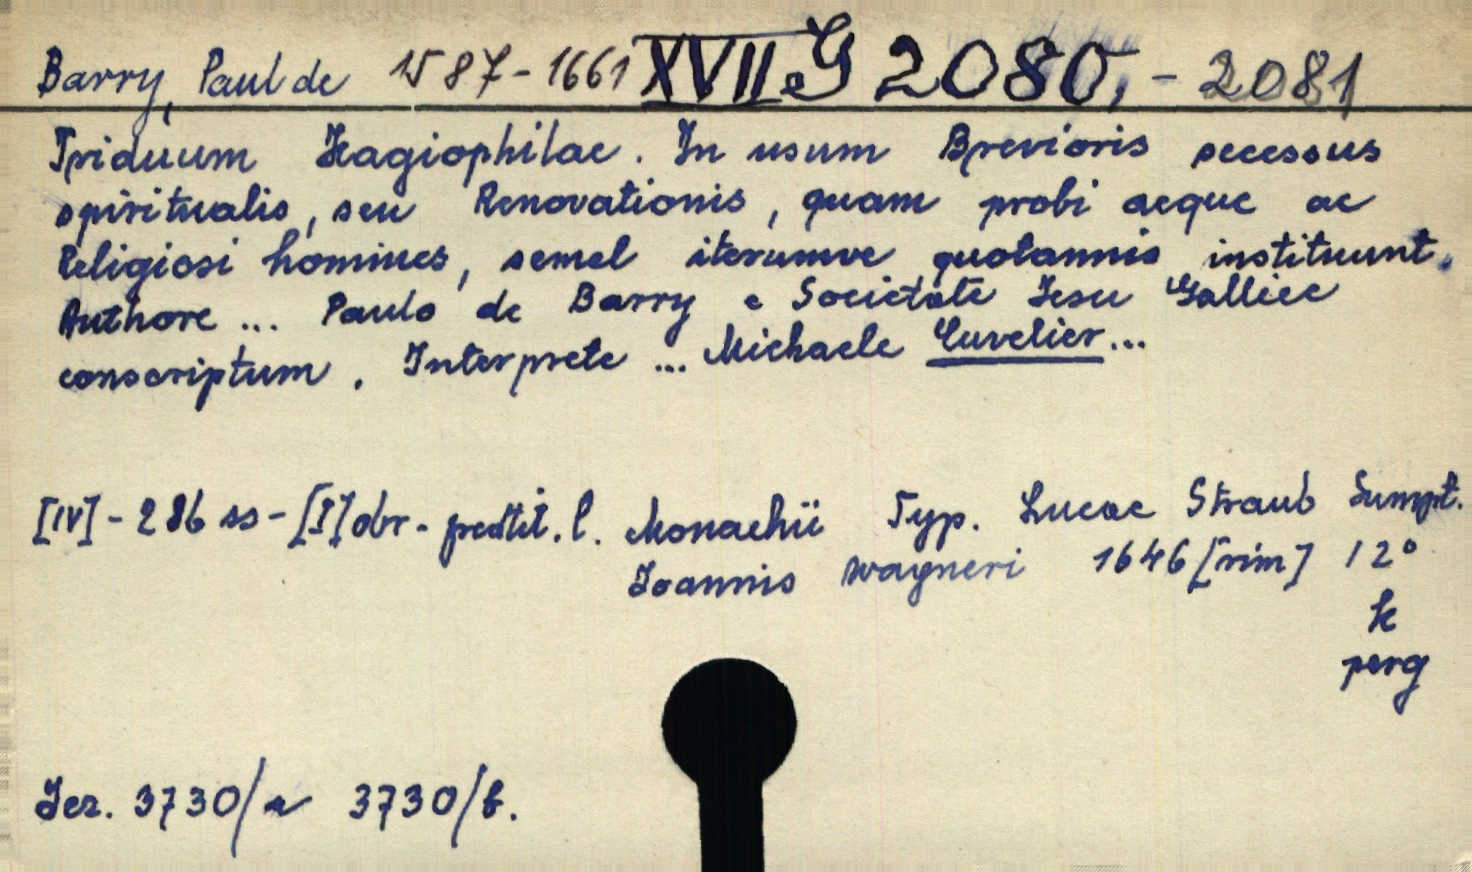 Barry, Paul de 1587-1661 XVII e G 2080, - 2081
Triduum Hagiophilae. In usum Brevioris secessus
spiritualis, seu Renovationis, quam probi aeque ac
Religiosi homines, semel iterumve quotannis instituunt.
Authore ... Paulo de Barry e Societate Iesu Gallice
conscriptum. Interprete ... Michaele Cuvelier...
[IV] - 286 ss - [I] obr - předtit. l. Monachii Typ. Lucae Straub Sumpt.
Joannis Wagneri 1646 [rim] 12°
k
perg
Jez. 3730/a 3730/b.